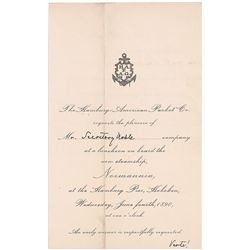 The Hamburg-American Packet Co.
requests the pleasure of
Mr. Secretary Noble company
at a luncheon on board the
new steamship,
Normannia,
at the Hamburg Pier, Hoboken,
Wednesday, June fourth, 1890,
at one o'clock.
An early answer is respectfully requested.